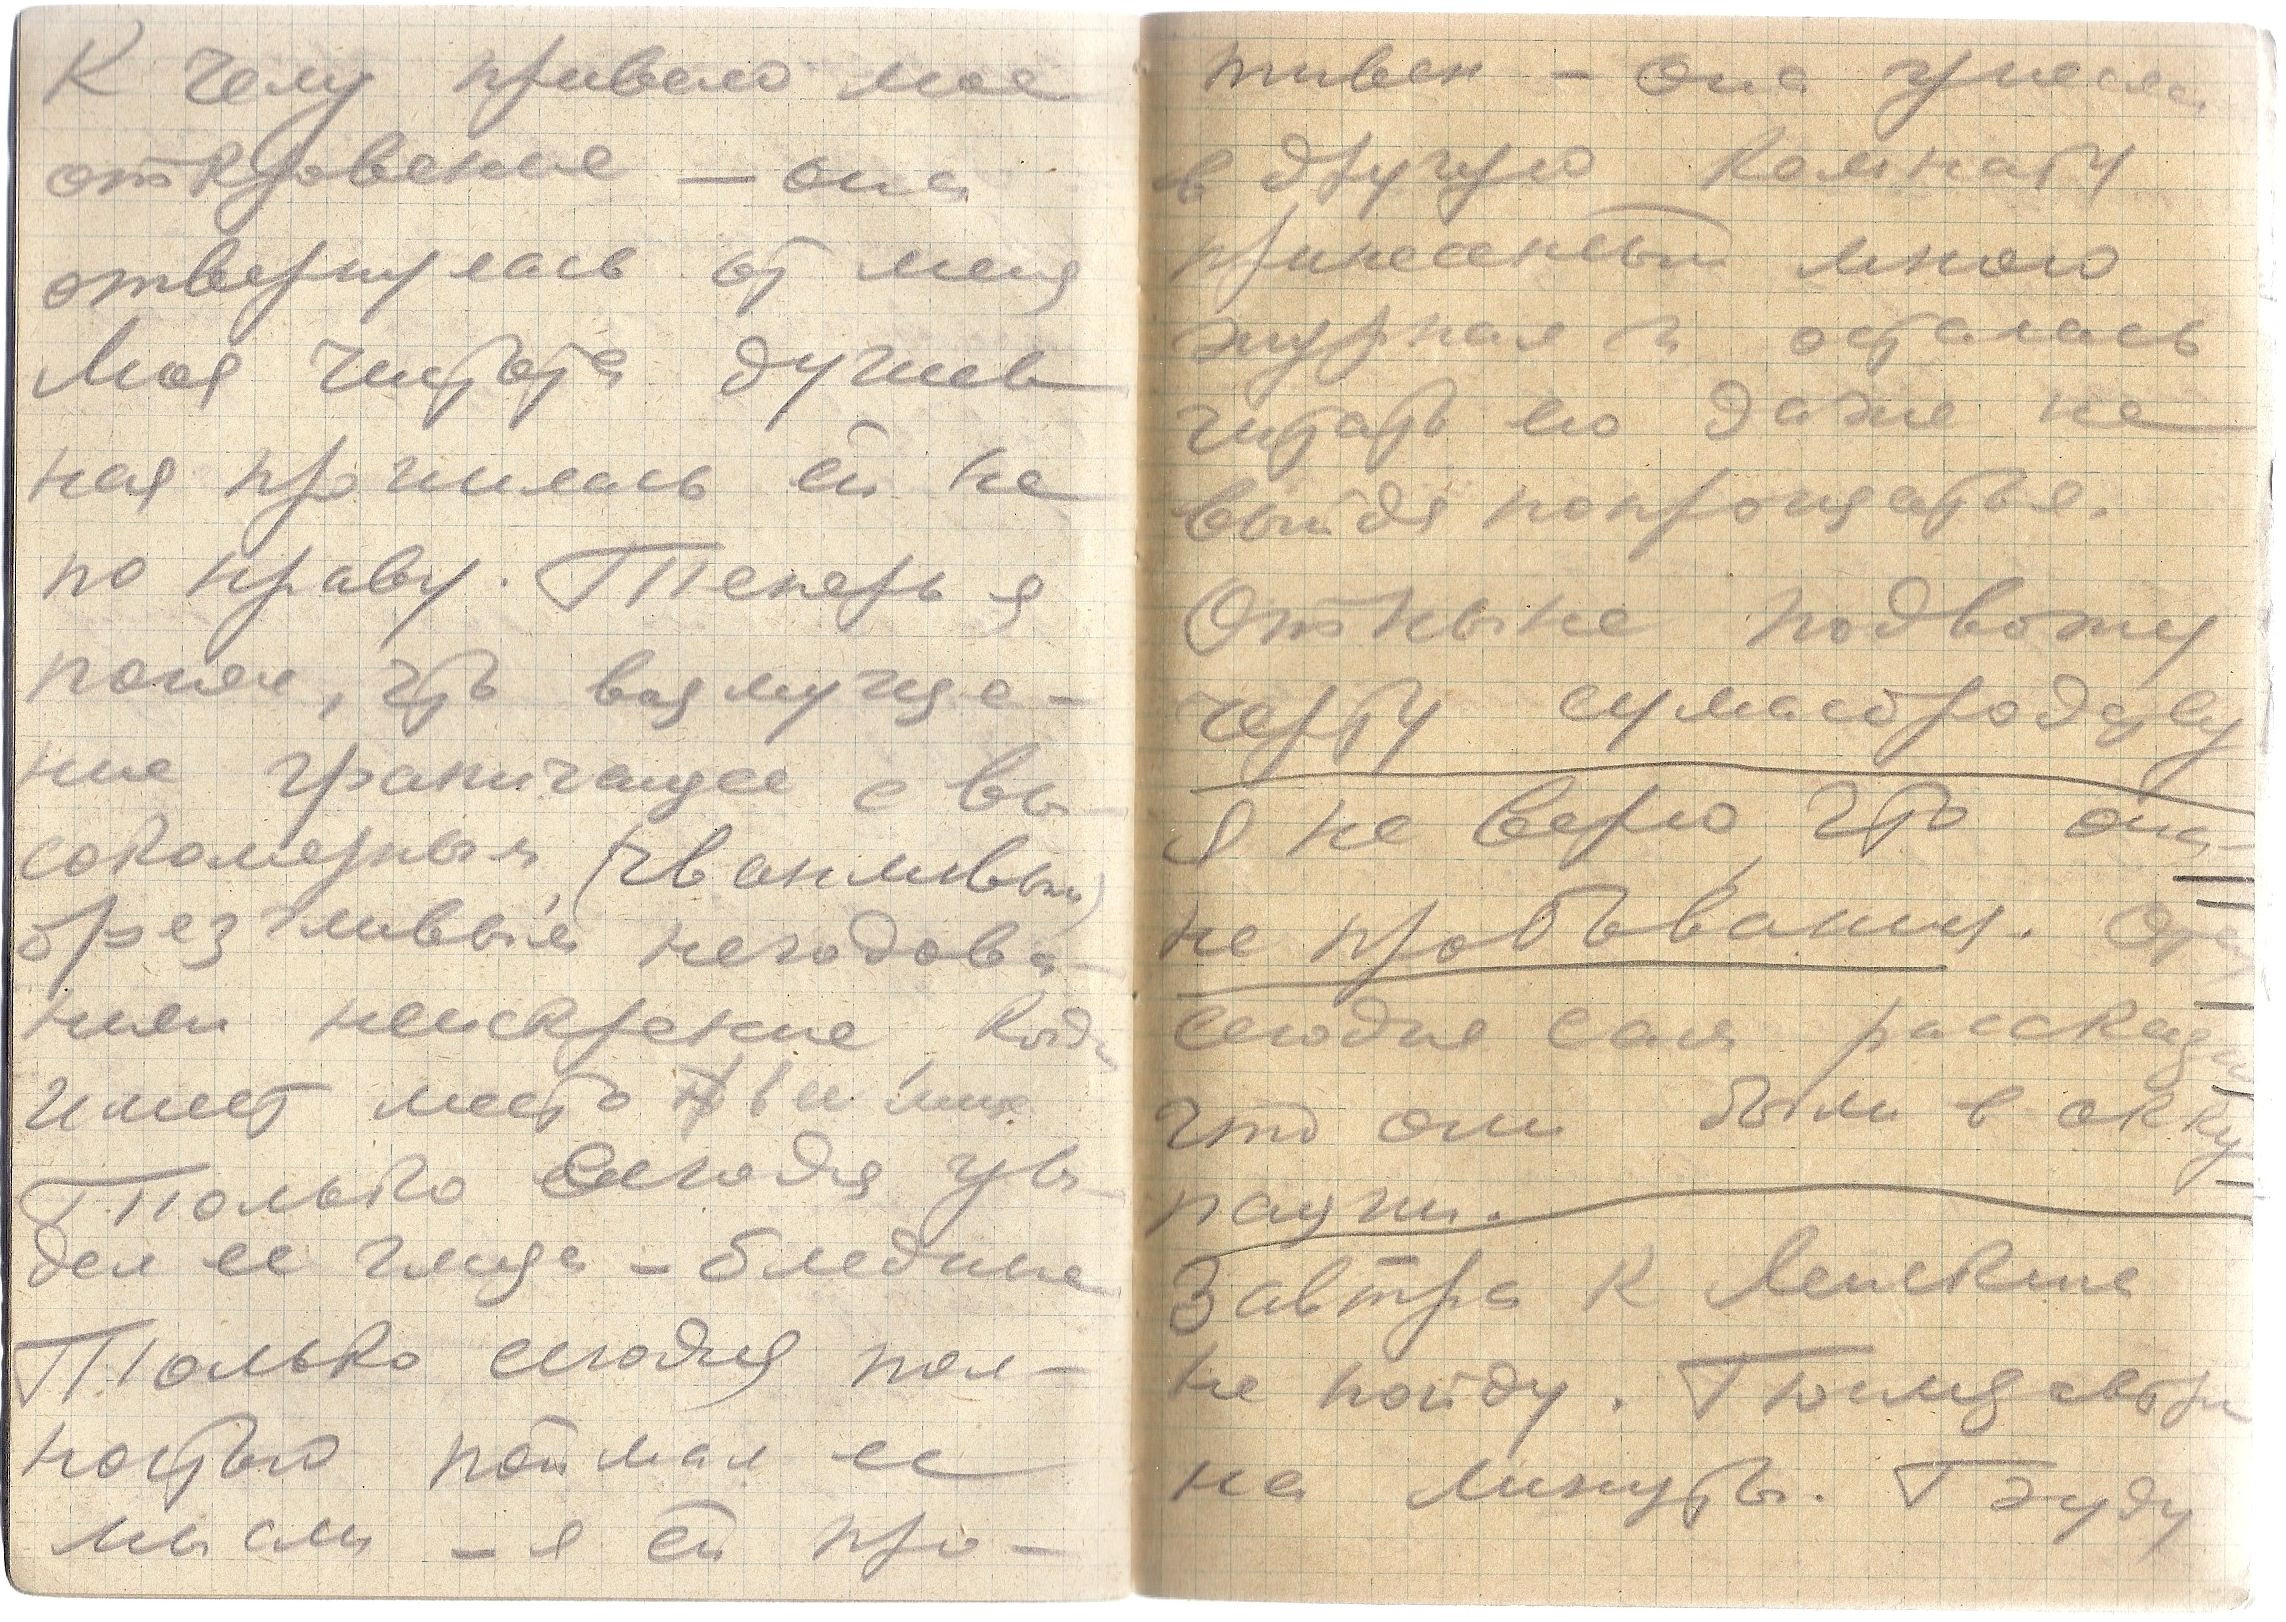 К чему привело мое
откровение — она
отвернулась от меня
Моя чистота душев
ная пришлась ей не
по нраву. Теперь я
понял, что возмуще-
ние граничащее с вы-
сокомерным, (чванливым)
брезгливым негодова-
нием неискренне
имеет место
Только сегодня уви
дел ее лицо – бледное
Только сегодня пол-
ностью поймал ее
мысли – я ей про-
тивен – она унесла
в другую комнату
принесенный мною
журнал и осталась
читать его даже не
выйдя попрощаться.
Отныне подвожу
черту сумасбродству
Я не верю, что они
не пробывании. Отец
сегодня сам рассказал
что они были в окку
пации.
Завтра к Ленский
не пойду.
на минуты. Т